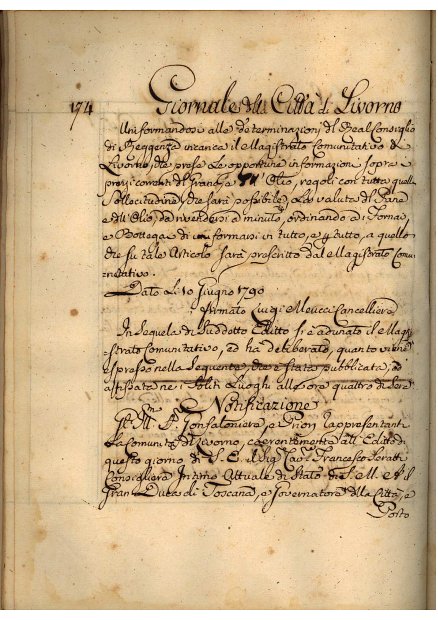 174
Giornale della Città di Livorno
Uniformandosi alle determinazioni del Real Consiglio
di Reggenza incarica il Magistrato Comunitativo di
Livorno, che prese le opportune informazioni sopra i
prezzi correnti di Grano, e d' Olio, regoli con tutta quella
sollecitudine, che sarà possibile, la valuta di Pane
e dell' Olio, da rivendersi a minuto, ordinando a' Fornai,
e Bottegai di uniformarsi in tutto, e p tutto, a quello
che su tale Articolo sarà prescritto dal Magistrato Comu
nitativo.
Dato Li 10 Giugno 1790
Firmato Luigi Meucci Cancelliere
In Sequela di Suddetto Editto si è adunato il Magi
strato Comunitativo, ed ha deliberato, quanto viene
espresso nella Seguente, che è stata pubblicata, ed
affissata ne i Soliti Luoghi alle ore quattro di Sera
Notificazione
Gl' Ill. SSri Gonfaloniere, e Priori rappresentanti
la Comunità di Livorno, coerentemente all' Editto di
questo giorno di S. E. il Sig. Cav. Francesco Seratti
Consigliere Intimo Attuale di Stato di S. M. e A. S.
Gran Duca di Toscana, e Governatore della Città, e
Porto